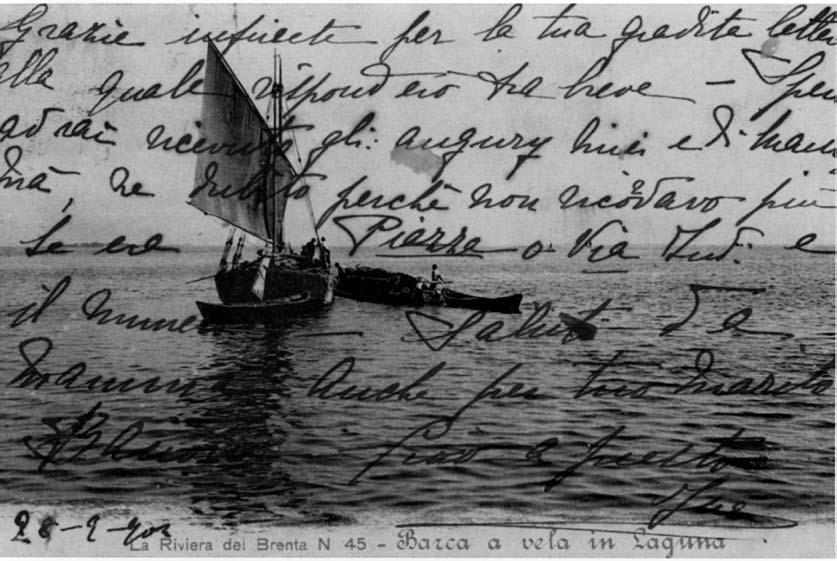 Grazie infinite per la tua gradita lette
alla quale risponderò tra breve – Spe
avrai ricevuto gli augury miei e di mam
ma, ne dubito perchè non ricordavo più
se era Piazza o Via Ind. e
il numero – Saluti da
mamma Anche per tuo marito
presto
28-2-903
La Riviera del Brenta N 45 - Barca a vela in Laguna